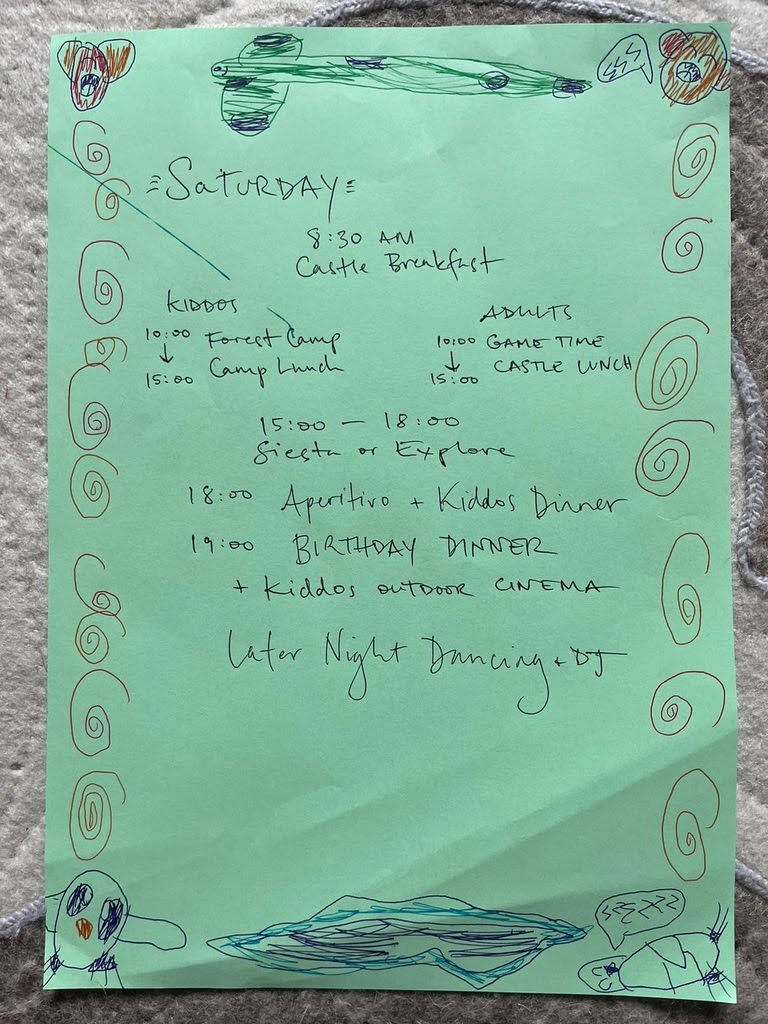 SATURDAY
8:30 AM
Castle Breakfast
KIDDOS
10:00 Forest Camp
↓ Camp Lunch
15:00
ADULTS
10:00 GAME TIME
↓ CASTLE LUNCH
15:00
15:00 – 18:00
Siesta or Explore
18:00 Aperitivo + Kiddos Dinner
19:00 BIRTHDAY DINNER
+ Kiddos OUTDOOR CINEMA
Later Night Dancing + DJ